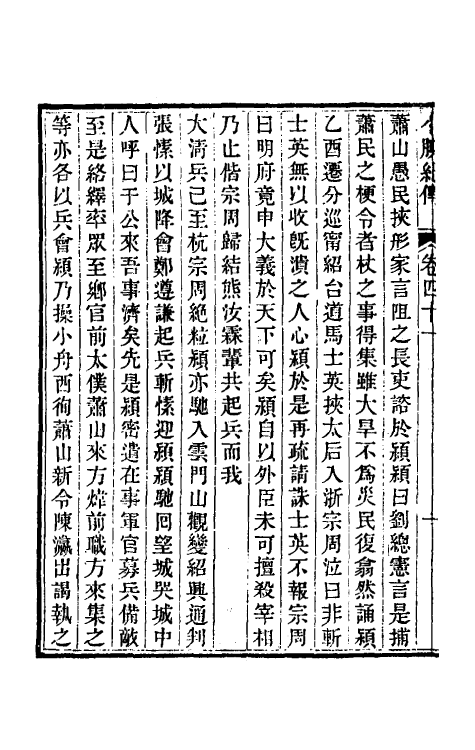 小腆紀傳 卷四十一
蕭山愚民挾形家言阻之長吏諮於潁潁曰劉總憲言是捕
蕭民之梗令者杖之事得集雖大旱不爲災民復翕然誦潁
乙酉遷分巡甯紹台道馬士英挾太后入浙宗周泣曰非斬
士英無以收旣潰之人心潁於是再疏請誅士英不報宗周
曰明府竟申大義於天下可矣潁自以外臣未可擅殺宰相
乃止偕宗周歸結熊汝霖輩共起兵而我
大淸兵已至杭宗周絶粒潁亦馳入雲門山觀變紹興通判
張愫以城降會鄭遵謙起兵斬愫迎潁潁馳囘望城哭城中
人呼曰于公來吾事濟矣先是潁密遣在事軍官募兵備敵
至是絡繹率眾至鄉官前太僕蕭山來方煒前職方來集之
等亦各以兵會潁乃操小舟西徇蕭山新令陳瀛出謁執之